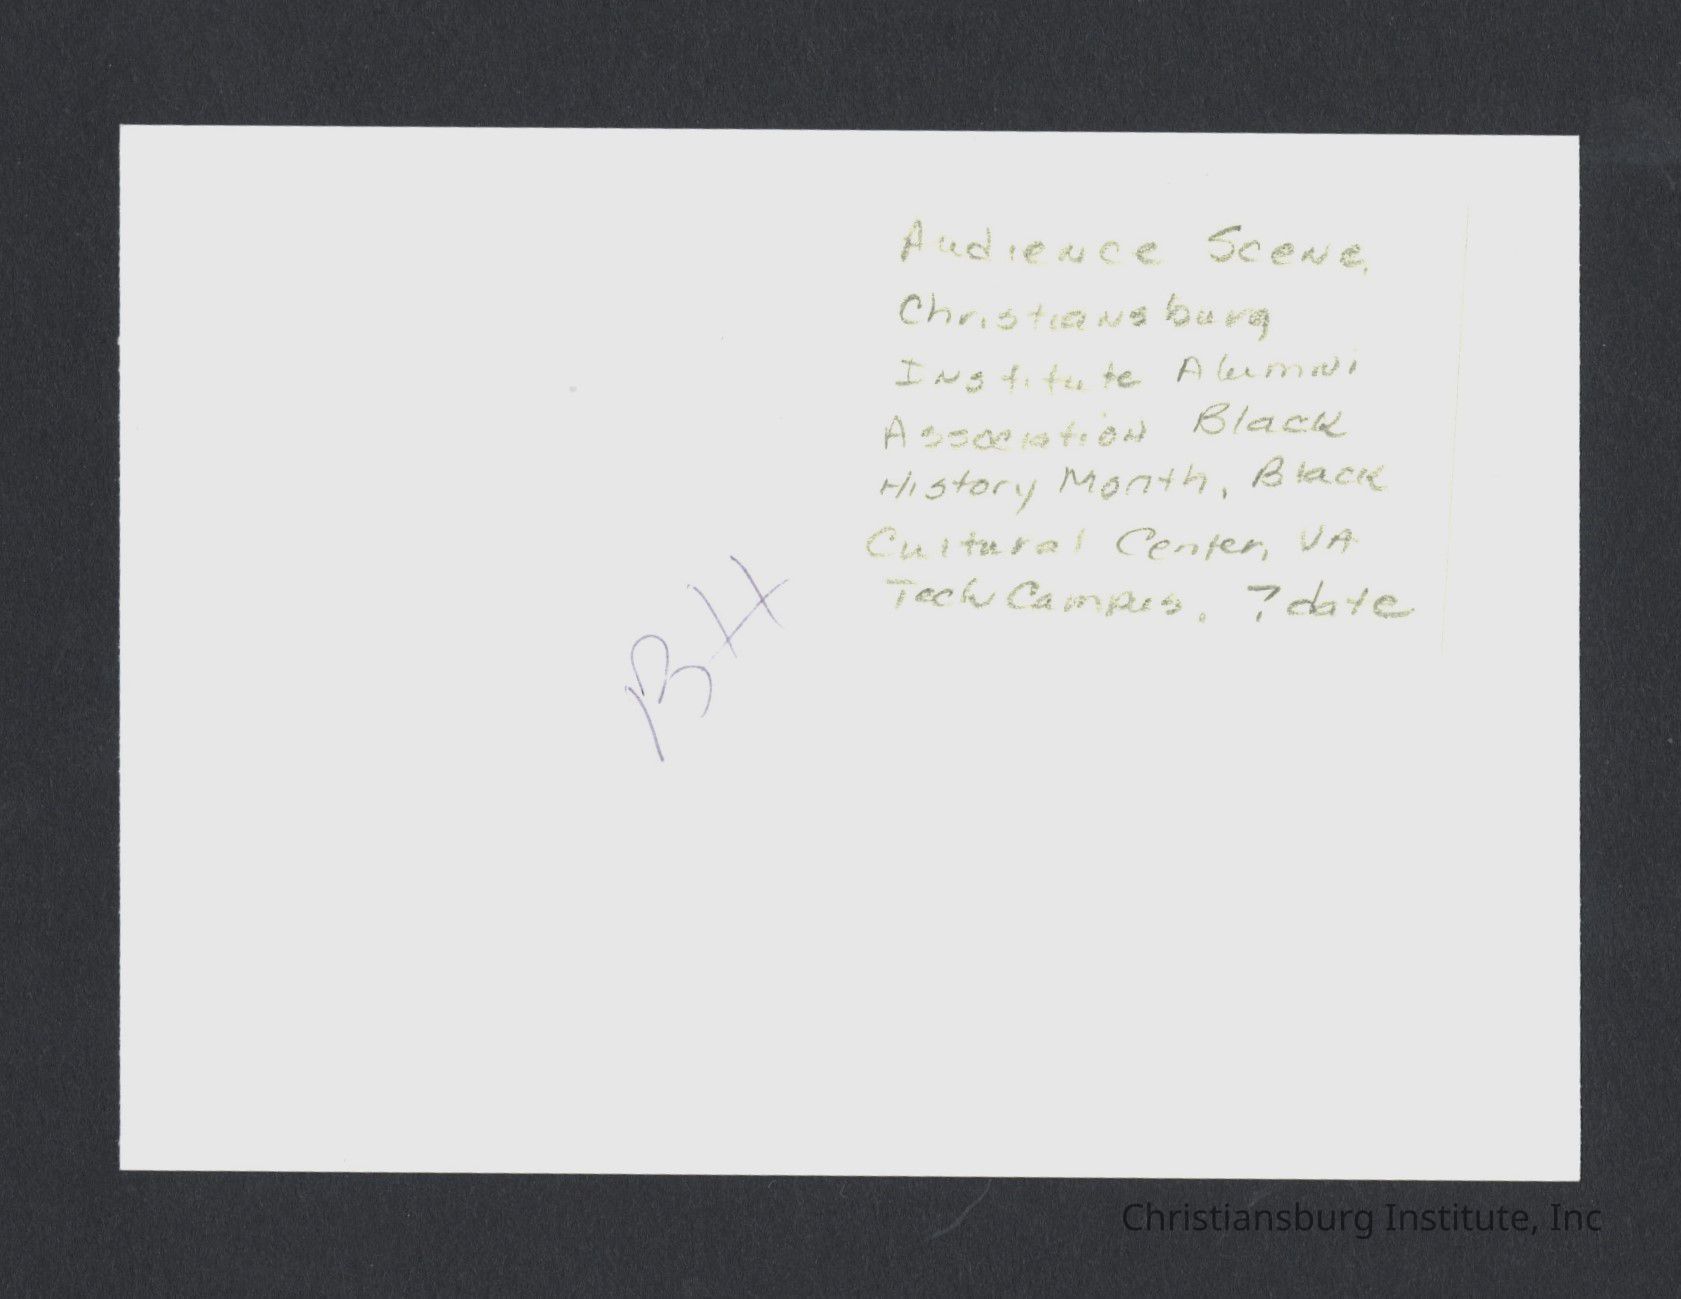 Audience Scene,
Christiansburg
Institute Alumni
Association Black
History Month, Black
Cultural Center, VA
Tech Campus. ? date
BH
Christiansburg Institute, Inc